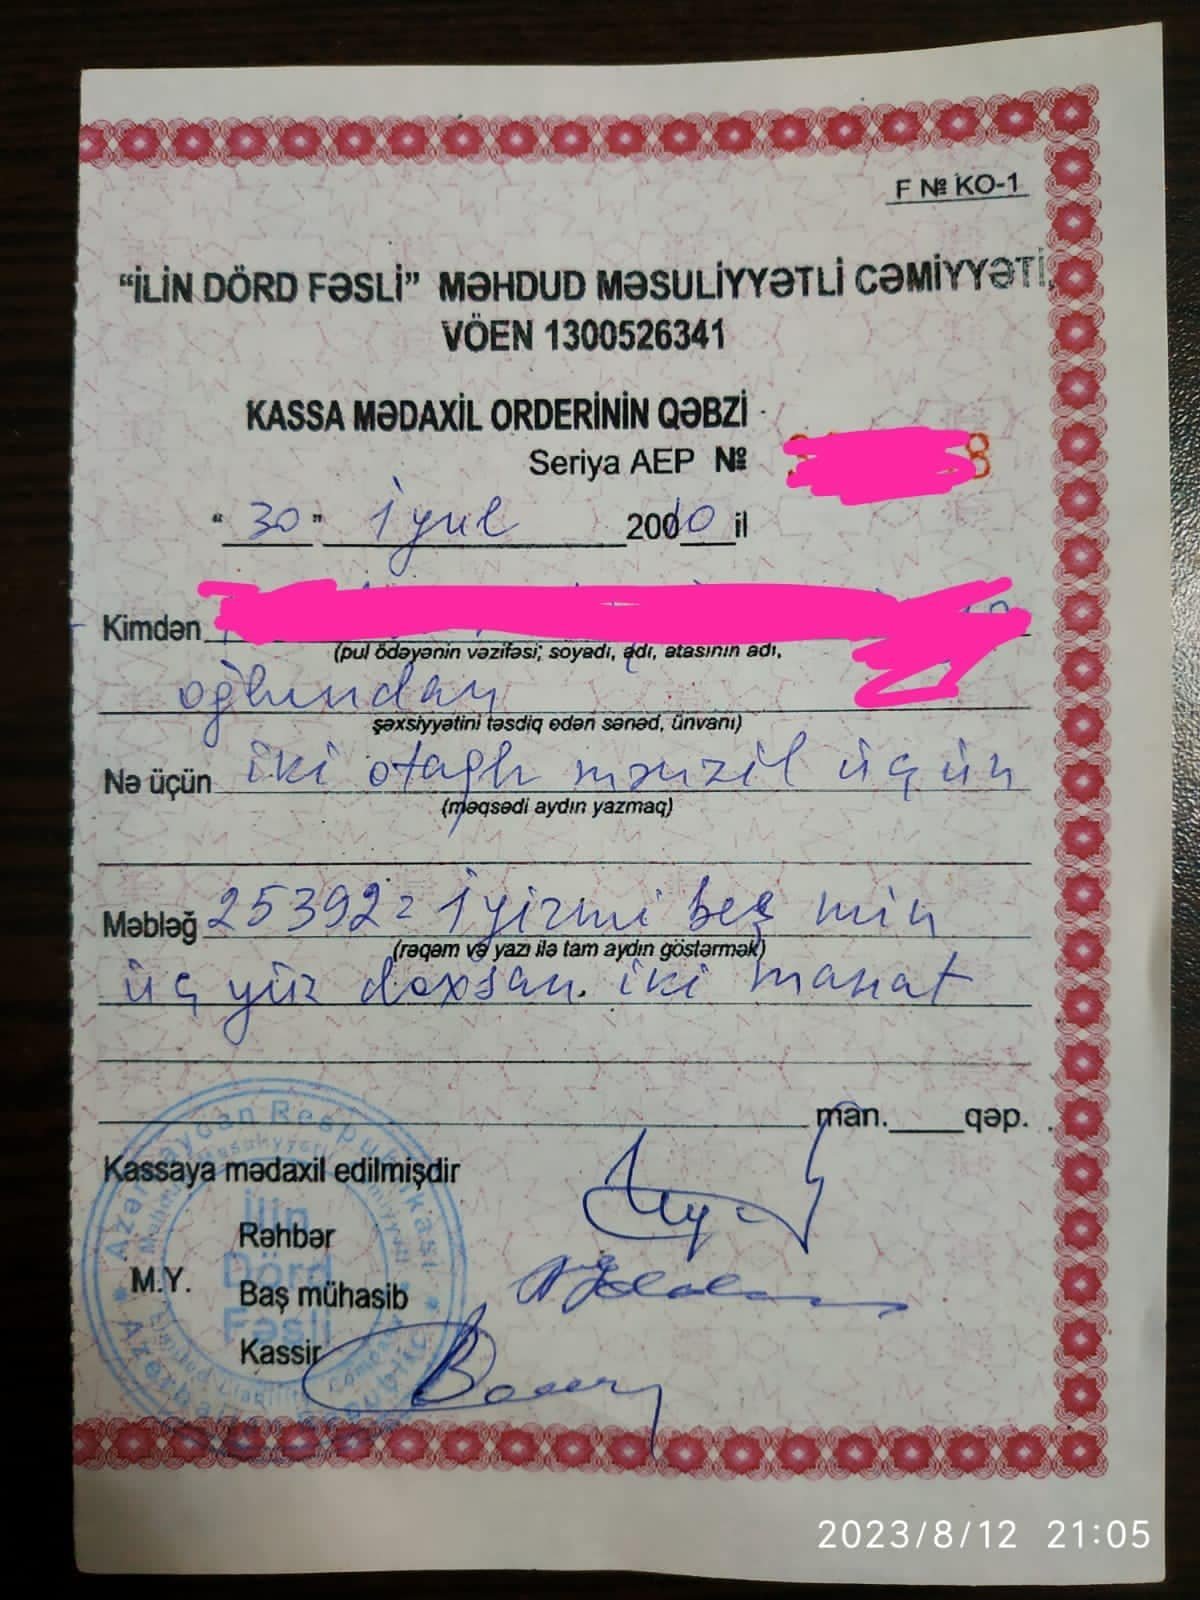 F № KO-1
“İLİN DÖRD FƏSLİ” MƏHDUD MƏSULİYYƏTLİ CƏMİYYƏTİ,
VÖEN 1300526341
KASSA MƏDAXİL ORDERİNİN QƏBZİ
Seriya AEP № 8
“30” iyul 20010 il
Kimdən
(pul ödəyənin vəzifəsi; soyadı, adı, atasının adı,
oğlundan
şəxsiyyətini təsdiq edən sənəd, ünvanı)
Nə üçün iki otaqlı mənzil üçün
(məqsədi aydın yazmaq)
Məbləğ 25392= iyirmi beş min
(rəqəm və yazı ilə tam aydın göstərmək)
üç yüz doxsan iki manat
man. qəp.
Kassaya mədaxil edilmişdir
Rəhbər
M.Y. Baş mühasib
Kassir
Azərbaycan Respublikası
İlin
Dörd
Fəsli
Limited Liability Company
2023/8/12 21:05